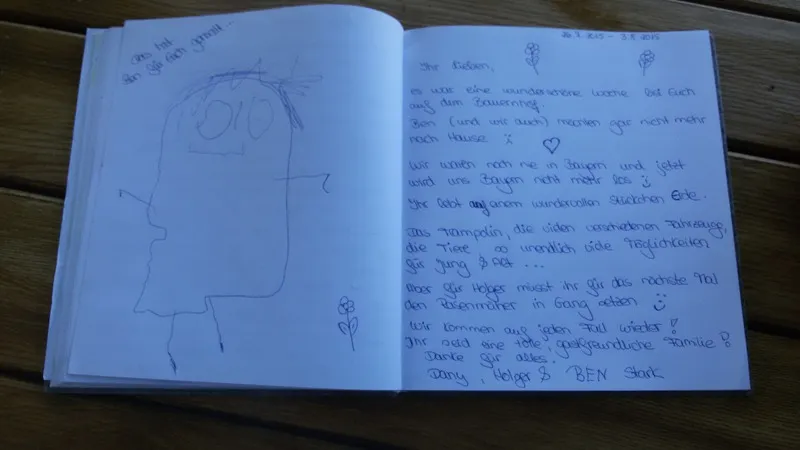 Das hat
Ben für Euch gemalt...
26.7.2015 - 3.8.2015
Ihr Lieben,
es war eine wunderschöne Woche bei Euch
auf dem Bauernhof.
Ben (und wir auch) möchten gar nicht mehr
nach Hause :(
Wir waren noch nie in Bayern und jetzt
wird uns Bayern nicht mehr los :)
Ihr lebt auf einem wundervollen Stückchen Erde.
Das Trampolin, die vielen verschiedenen Fahrzeuge,
die Tiere, so unendlich viele Möglichkeiten
für Jung & Alt ...
Aber für Holger müsst ihr für das nächste Mal
den Rasenmäher in Gang setzen :)
Wir kommen auf jeden Fall wieder!
Ihr seid eine tolle, gastfreundliche Familie!
Danke für alles.
Dany, Holger & BEN Stark